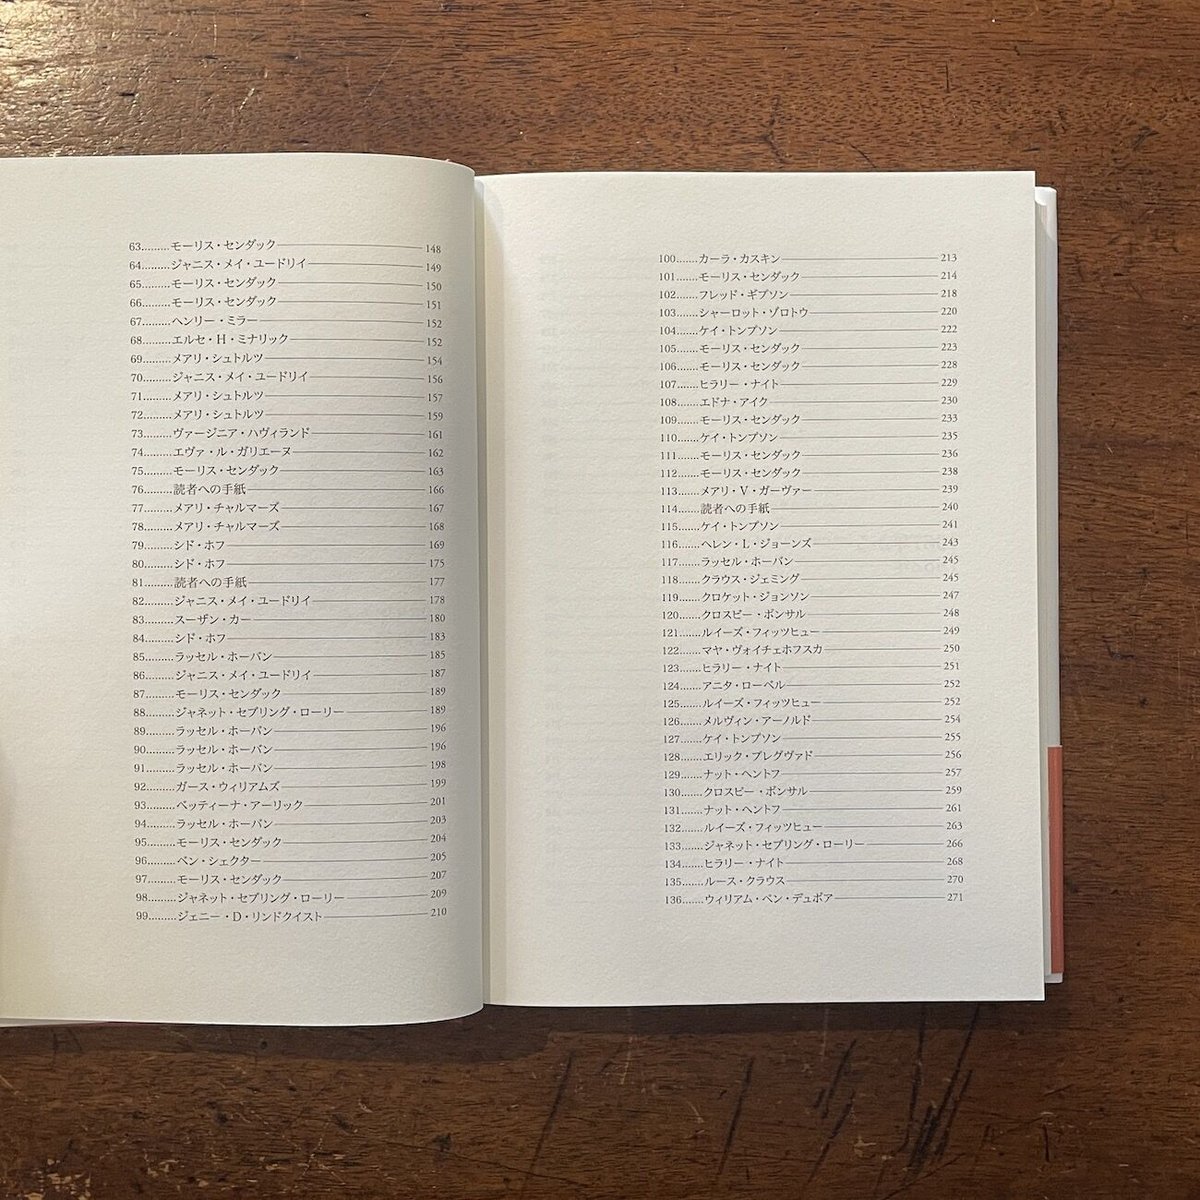 63.........モーリス・センダック 148
64.........ジャニス・メイ・ユードリイ 149
65.........モーリス・センダック 150
66.........モーリス・センダック 151
67.........ヘンリー・ミラー 152
68.........エルセ・H・ミナリック 152
69.........メアリ・シュトルツ 154
70.........ジャニス・メイ・ユードリイ 156
71.........メアリ・シュトルツ 157
72.........メアリ・シュトルツ 159
73.........ヴァージニア・ハヴィランド 161
74.........エヴァ・ル・ガリエーヌ 162
75.........モーリス・センダック 163
76.........読者への手紙 166
77.........メアリ・チャルマーズ 167
78.........メアリ・チャルマーズ 168
79.........シド・ホフ 169
80.........シド・ホフ 175
81.........読者への手紙 177
82.........ジャニス・メイ・ユードリイ 178
83.........スーザン・カー 180
84.........シド・ホフ 183
85.........ラッセル・ホーバン 185
86.........ジャニス・メイ・ユードリイ 187
87.........モーリス・センダック 189
88.........ジャネット・セブリング・ローリー 189
89.........ラッセル・ホーバン 196
90.........ラッセル・ホーバン 196
91.........ラッセル・ホーバン 198
92.........ガース・ウィリアムズ 199
93.........ベッティーナ・アーリック 201
94.........ラッセル・ホーバン 203
95.........モーリス・センダック 204
96.........ベン・シェクター 205
97.........モーリス・センダック 207
98.........ジャネット・セブリング・ローリー 209
99.........ジェニー・D・リンドクイスト 210
100.......カーラ・カスキン 213
101.......モーリス・センダック 214
102.......フレッド・ギプソン 218
103.......シャーロット・ゾロトウ 220
104.......ケイ・トンプソン 222
105.......モーリス・センダック 223
106.......モーリス・センダック 228
107.......ヒラリー・ナイト 229
108.......エドナ・アイク 230
109.......モーリス・センダック 233
110.......ケイ・トンプソン 235
111.......モーリス・センダック 236
112.......モーリス・センダック 238
113.......メアリ・V・ガーヴァー 239
114.......読者への手紙 240
115.......ケイ・トンプソン 241
116.......ヘレン・L・ジョーンズ 243
117.......ラッセル・ホーバン 245
118.......クラウス・ジェミング 245
119.......クロケット・ジョンソン 247
120.......クロスビー・ボンサル 248
121.......ルイーズ・フィッツヒュー 249
122.......マヤ・ヴォイチェホフスカ 250
123.......ヒラリー・ナイト 251
124.......アニタ・ローベル 252
125.......ルイーズ・フィッツヒュー 252
126.......メルヴィン・アーノルド 254
127.......ケイ・トンプソン 255
128.......エリック・ブレグヴァド 256
129.......ナット・ヘントフ 257
130.......クロスビー・ボンサル 259
131.......ナット・ヘントフ 261
132.......ルイーズ・フィッツヒュー 263
133.......ジャネット・セブリング・ローリー 266
134.......ヒラリー・ナイト 268
135.......ルース・クラウス 270
136.......ウィリアム・ペン・デュボア 271